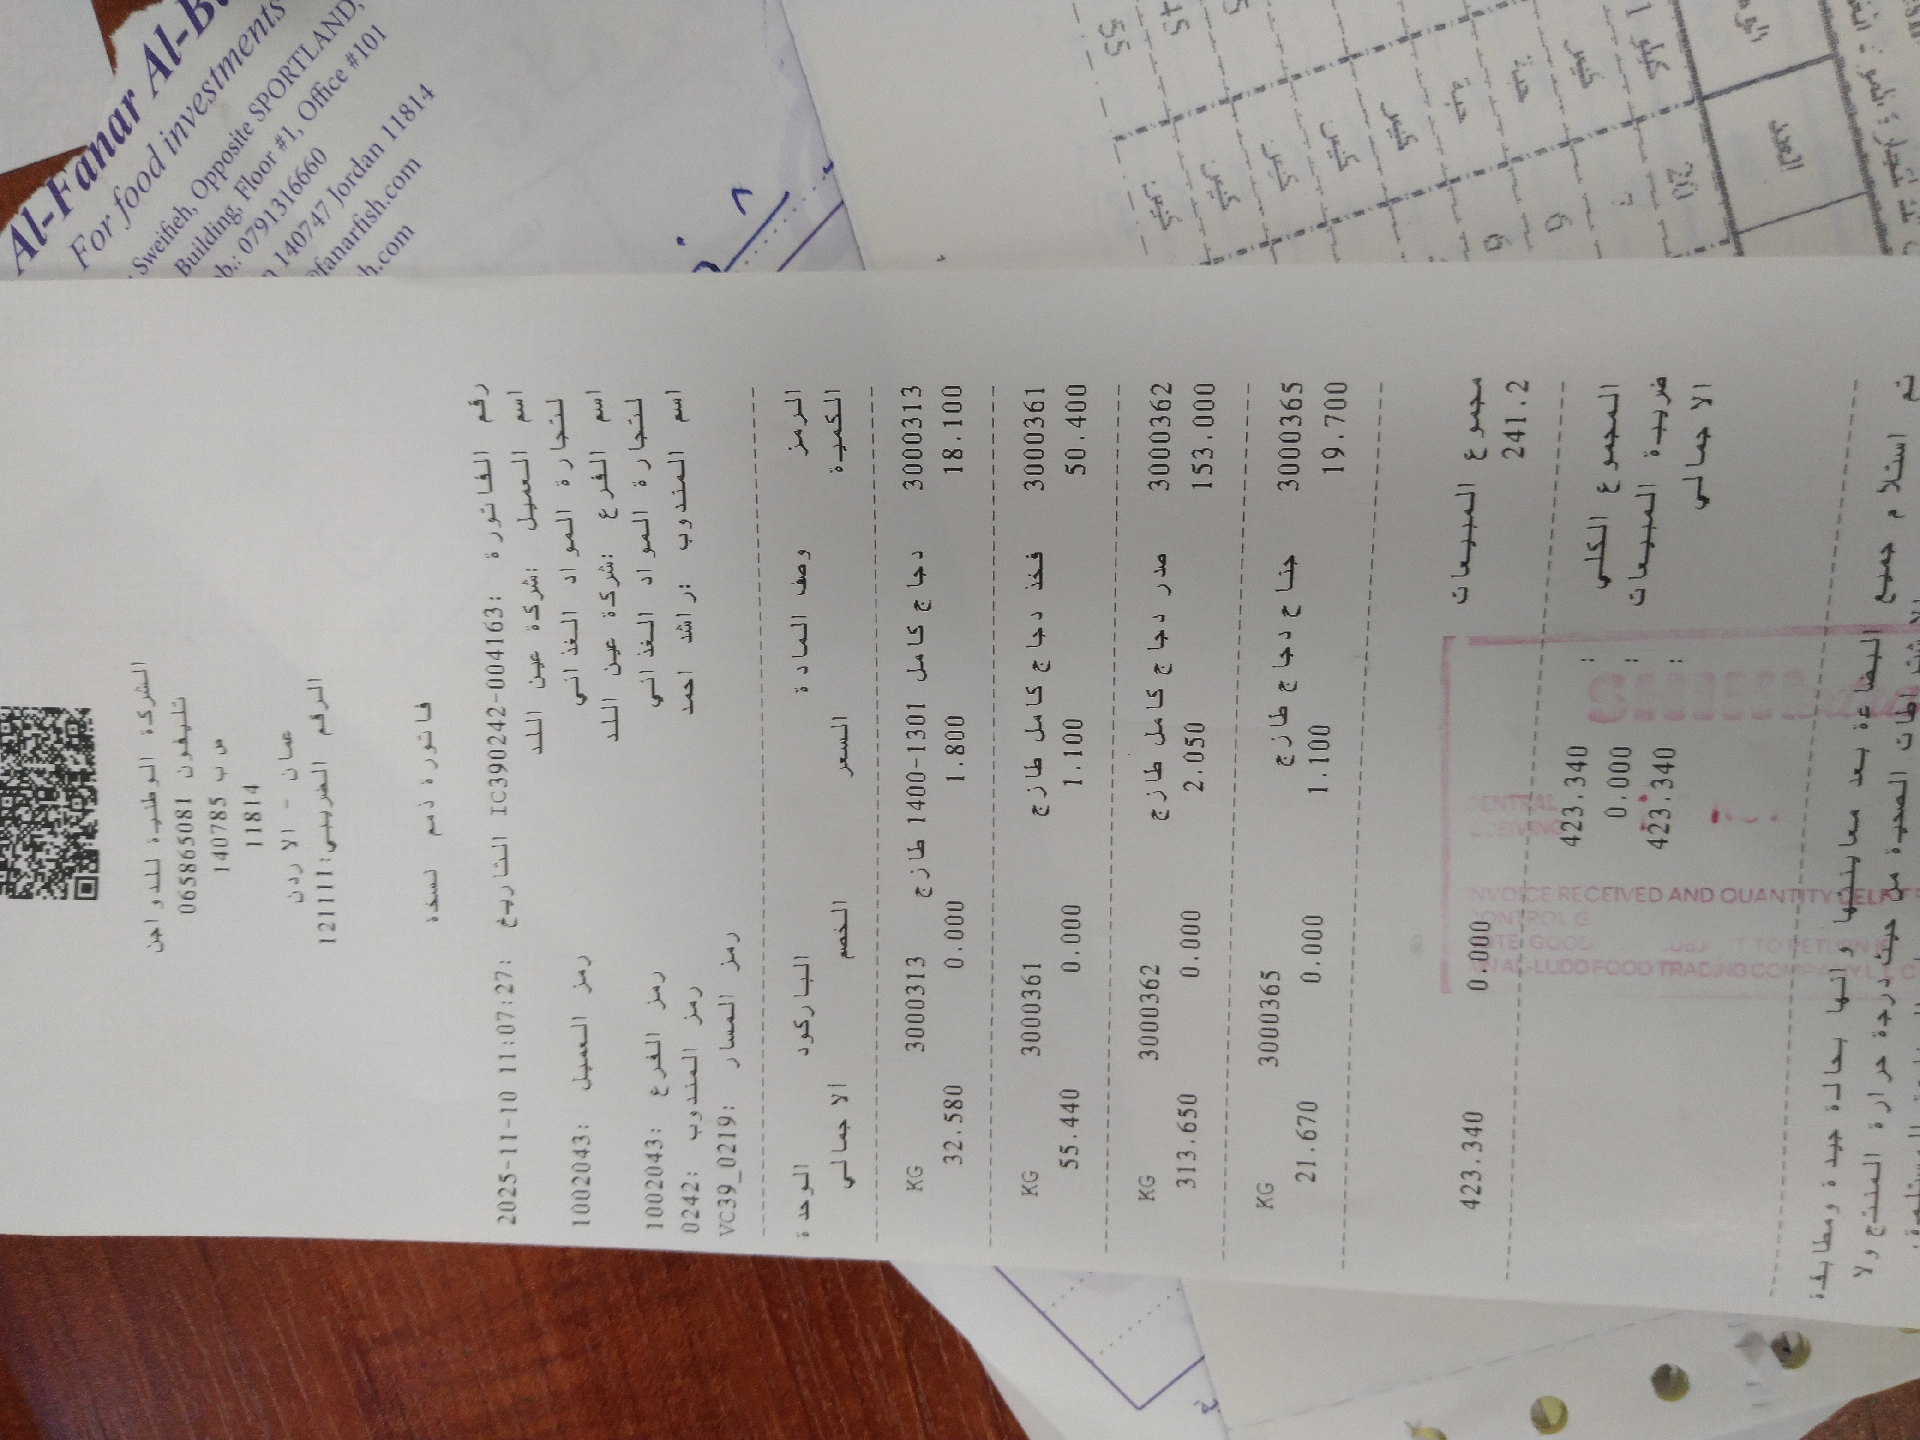 الشركة الوطنية للدواجن
تليفون 065865081
ص ب 140785
11814
عمان - الاردن
الرقم الضريبي:121111
فاتورة ذمم نسخة
رقم الفاتورة :IC390242-004163 التاريخ :2025-11-10 11:07:27
اسم العميل :شركة عين اللد
لتجارة المواد الغذائي
رمز العميل :1002043
اسم الفرع :شركة عين اللد
لتجارة المواد الغذائي
رمز الفرع :1002043
اسم المندوب :راشد احمد
رمز المندوب :0242
رمز المسار :VC39_0219
الرمز وصف المادة الباركود الوحدة
الكمية السعر الخصم الاجمالي
3000313 دجاج كامل 1301-1400 طازج 3000313 KG
18.100 1.800 0.000 32.580
3000361 فخذ دجاج كامل طازج 3000361 KG
50.400 1.100 0.000 55.440
3000362 صدر دجاج كامل طازج 3000362 KG
153.000 2.050 0.000 313.650
3000365 جناح دجاج طازج 3000365 KG
19.700 1.100 0.000 21.670
مجموع المبيعات 0.000 423.340
241.2
المجموع الكلي : 423.340
ضريبة المبيعات : 0.000
الاجمالي : 423.340
تم استلام جميع البضاعة بعد معاينتها وانها بحالة جيدة ومطابقة
الصحية من حيث درجة حرارة المنتج ولا
CENTRAL
INVOICE RECEIVED AND QUANTITY
CONTROL
TO RETURN
AL-LUDD FOOD TRADING COMPANY
Al-Fanar
For food investments
Sweifieh, Opposite SPORTLAND,
Building, Floor #1, Office #101
0791316660
140747 Jordan 11814
fanarfish.com
العدد
20
كيلو
كيس
6
حبة
6
حبة
كيس
كيس
كيس
كيس
كيس
55